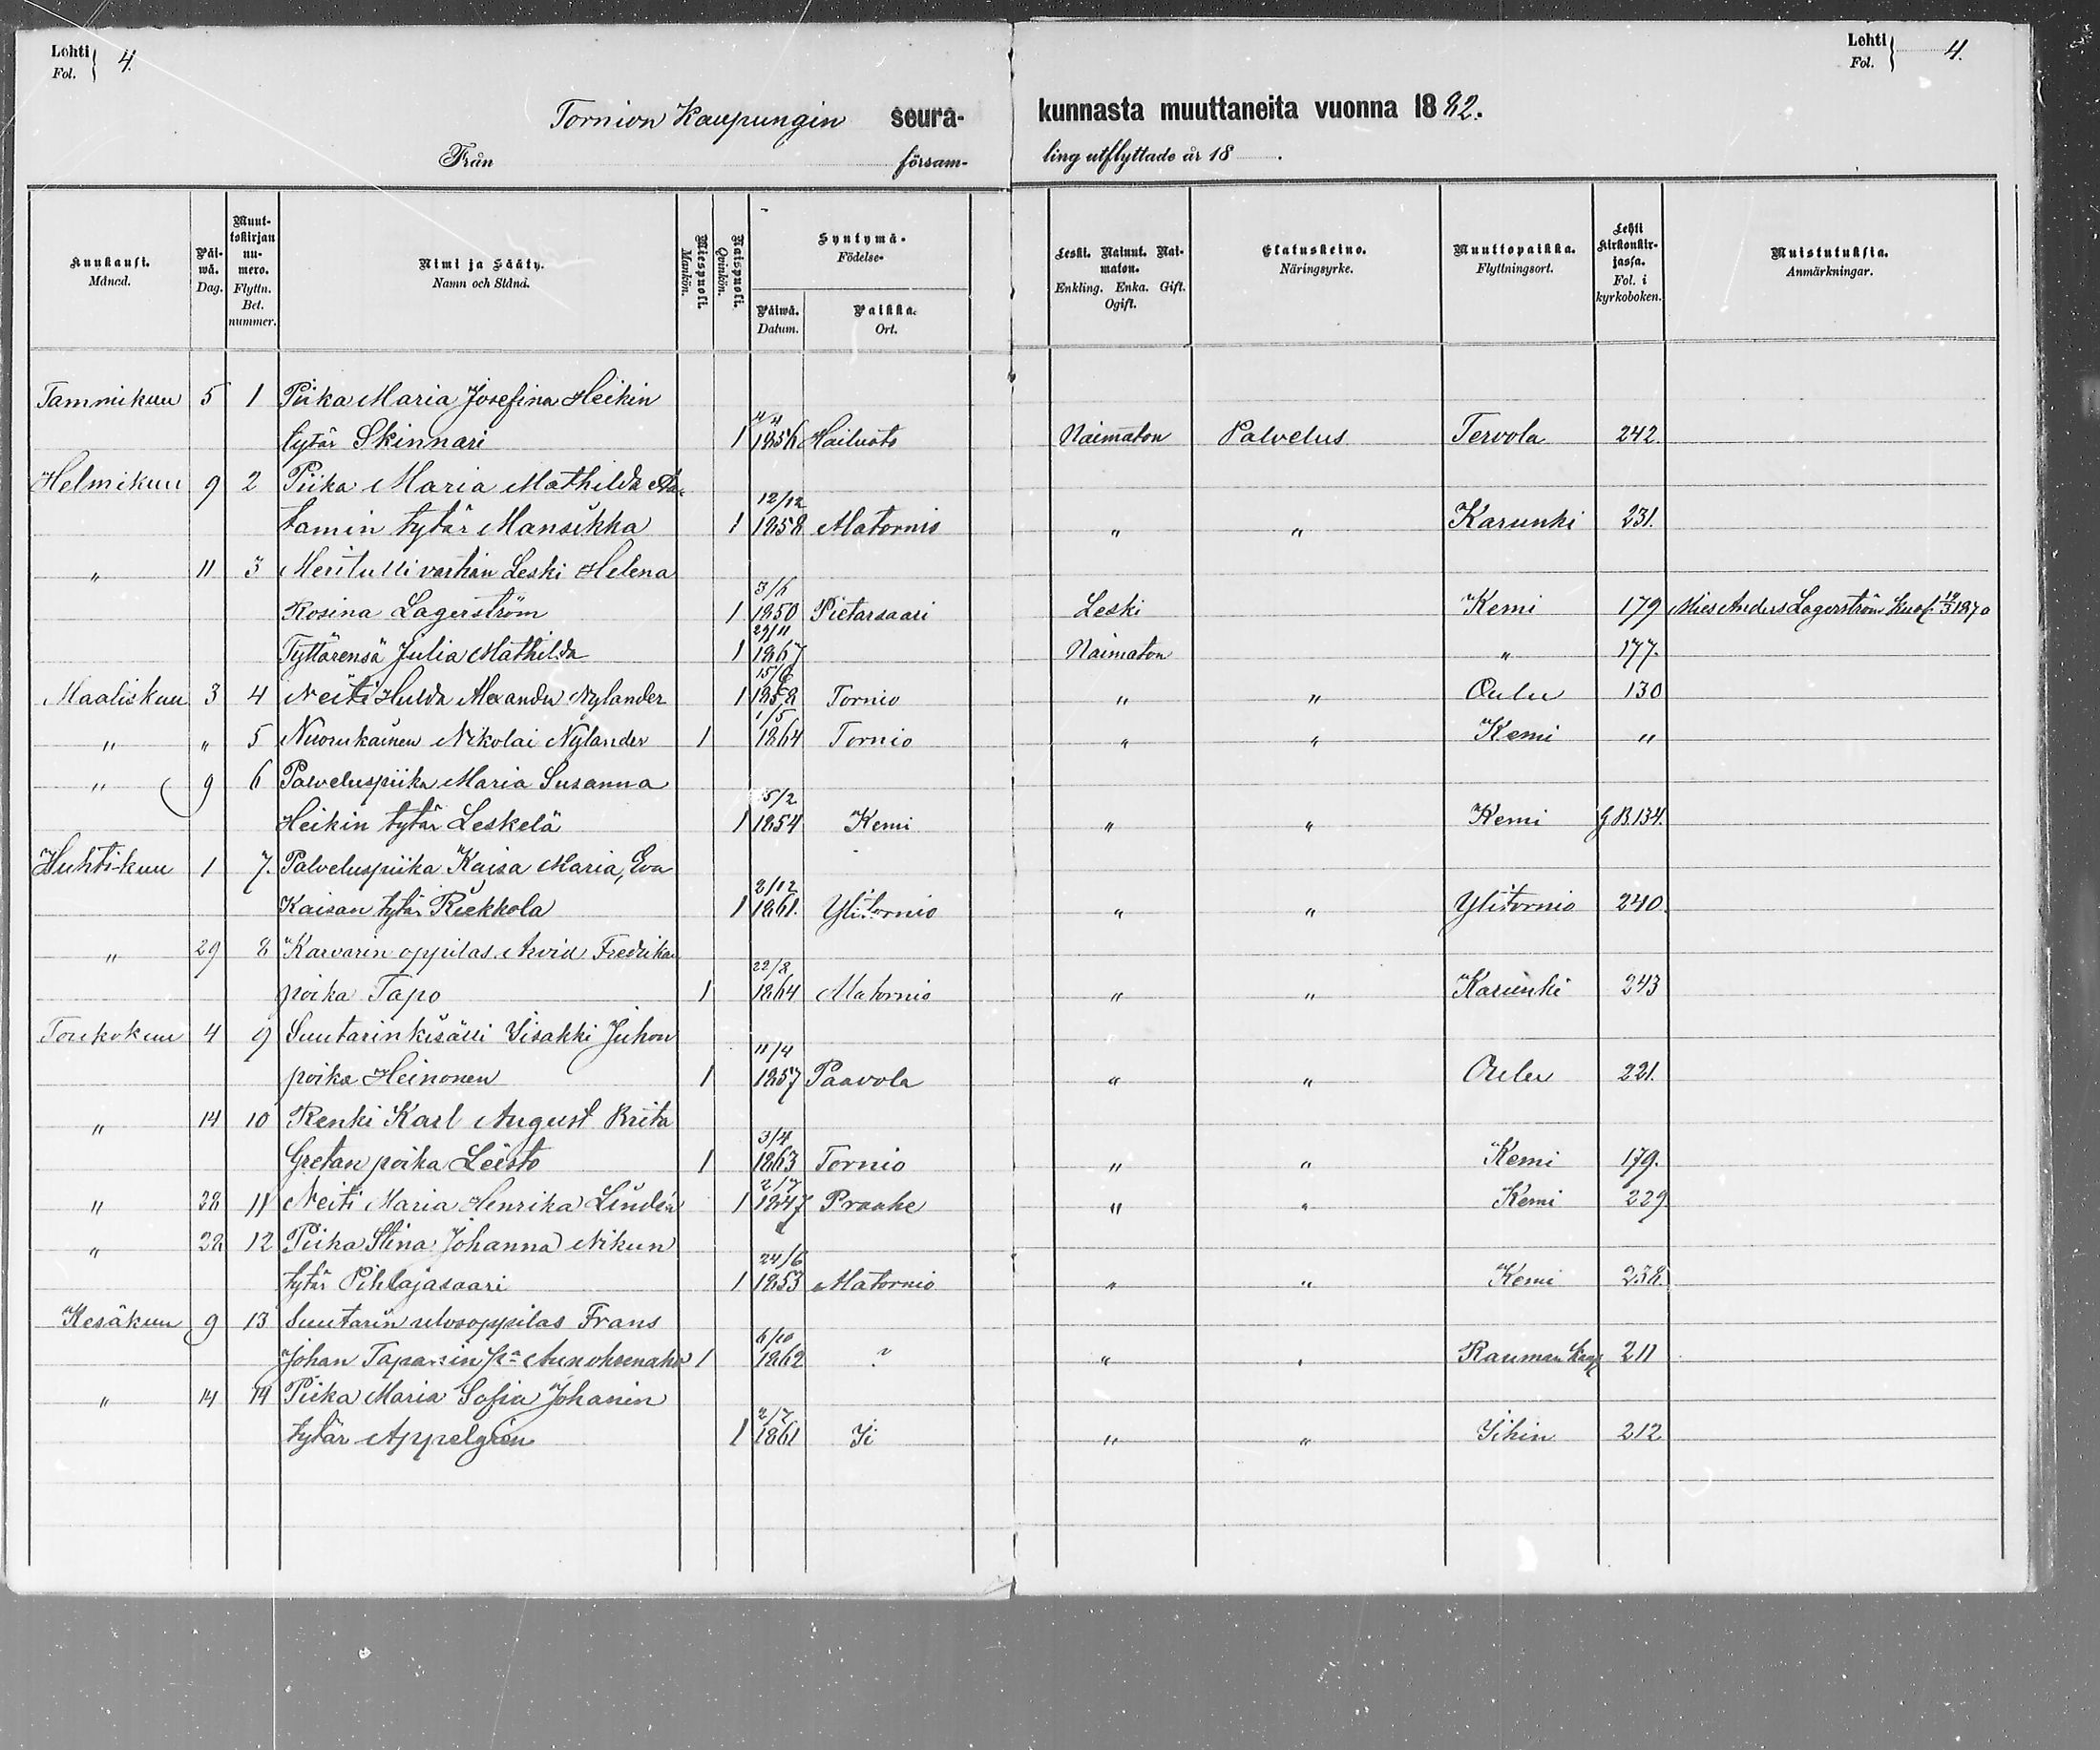 Lehti
Fol. } 4.
Lehti
Fol. } 4.
Tornion Kaupungin seura- kunnasta muuttaneita vuonna 1882.
Från församling utflyttade år 18 .
Kuukausi. Månad.
Päiwä. Dag.
Muuttokirjan numero. Flyttn. Bet. nummer.
Nimi ja Sääty. Namn och Stånd.
Miespuoli. Mankön.
Naispuoli. Qvinkön.
Syntymä- Födelse-
Päiwä. Datum.
Paikka. Ort.
Leski. Nainut. Naimaton. Enkling. Enka. Gift. Ogift.
Elatuskeino. Näringsyrke.
Muuttopaikka. Flyttningsort.
Lehti Kirkonkirjassa. Fol. i kyrkoboken.
Muistutuksia. Anmärkningar.
Tammikuu 5 1 Piika Maria Josefina Heikin
tytär Skinnari 1 1856 Hailuoto Naimaton Palvelus Tervola 242.
Helmikuu 9 2 Piika Maria Mathilda Aa-
tamin tytär Mansikka 1 12/12 1858 Alatornio " " Karunki 231.
" 11 3 Meritullivartian Leski Helena
Rosina Lagerström 1 3/6 1850 Pietarsaari Leski Kemi 179 Mies Anders Lagerström 1870
Tyttärensä Julia Mathilda 1 29/11 1867 Naimaton " 177.
Maaliskuu 3 4 Neiti Hulda Alexandra Nylander 1 15/6 1858 Tornio " " Oulu 130
" " 5 Nuorukainen Nikolai Nylander 1 1/5 1864 Tornio " " Kemi "
" 9 6 Palveluspiika Maria Susanna
Heikin tytär Leskelä 1 5/2 1854 Kemi " " Kemi G.B.134.
Huhtikuu 1 7. Palveluspiika Kaisa Maria, Eva
Kaisan tytär Riekkola 1 2/12 1861. Ylitornio " " Ylitornio 240.
" 29 8 Karvarin oppilas Arvid Fredrikan
poika Tapo 1 22/8 1864 Alatornio " " Karunki 243
Toukokuu 4 9 Suutarinkisälli Iisakki Juhon
poika Heinonen 1 11/4 1857 Paavola " " Oulu 221.
" 14 10 Renki Karl August Brita
Gretan poika Leisto 1 3/4 1863 Tornio " " Kemi 179.
" 28 11 Neiti Maria Henrika Lindén 1 2/7 1847 Praahe " " Kemi 229
" 28 12 Piika Stina Johanna Nikun
tytär Pihlajasaari 1 24/6 1853 Alatornio " " Kemi 238.
Kesäkuu 9 13 Suutarin ulosoppilas Frans
Johan Taparsin 1 6/10 1862 ? " " Rauman 211
" 14 14 Piika Maria Sofia Johanin
tytär Appelgrén 1 2/7 1861 Ii " " Iihin 212